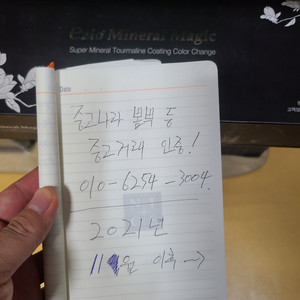 Ezio Mineral Magic
Super Mineral Tourmaline Coating Color Change
Date
중고나라 별부 등
중고거래 인증!
010-6254-3004.
2021년
11월 이후 →